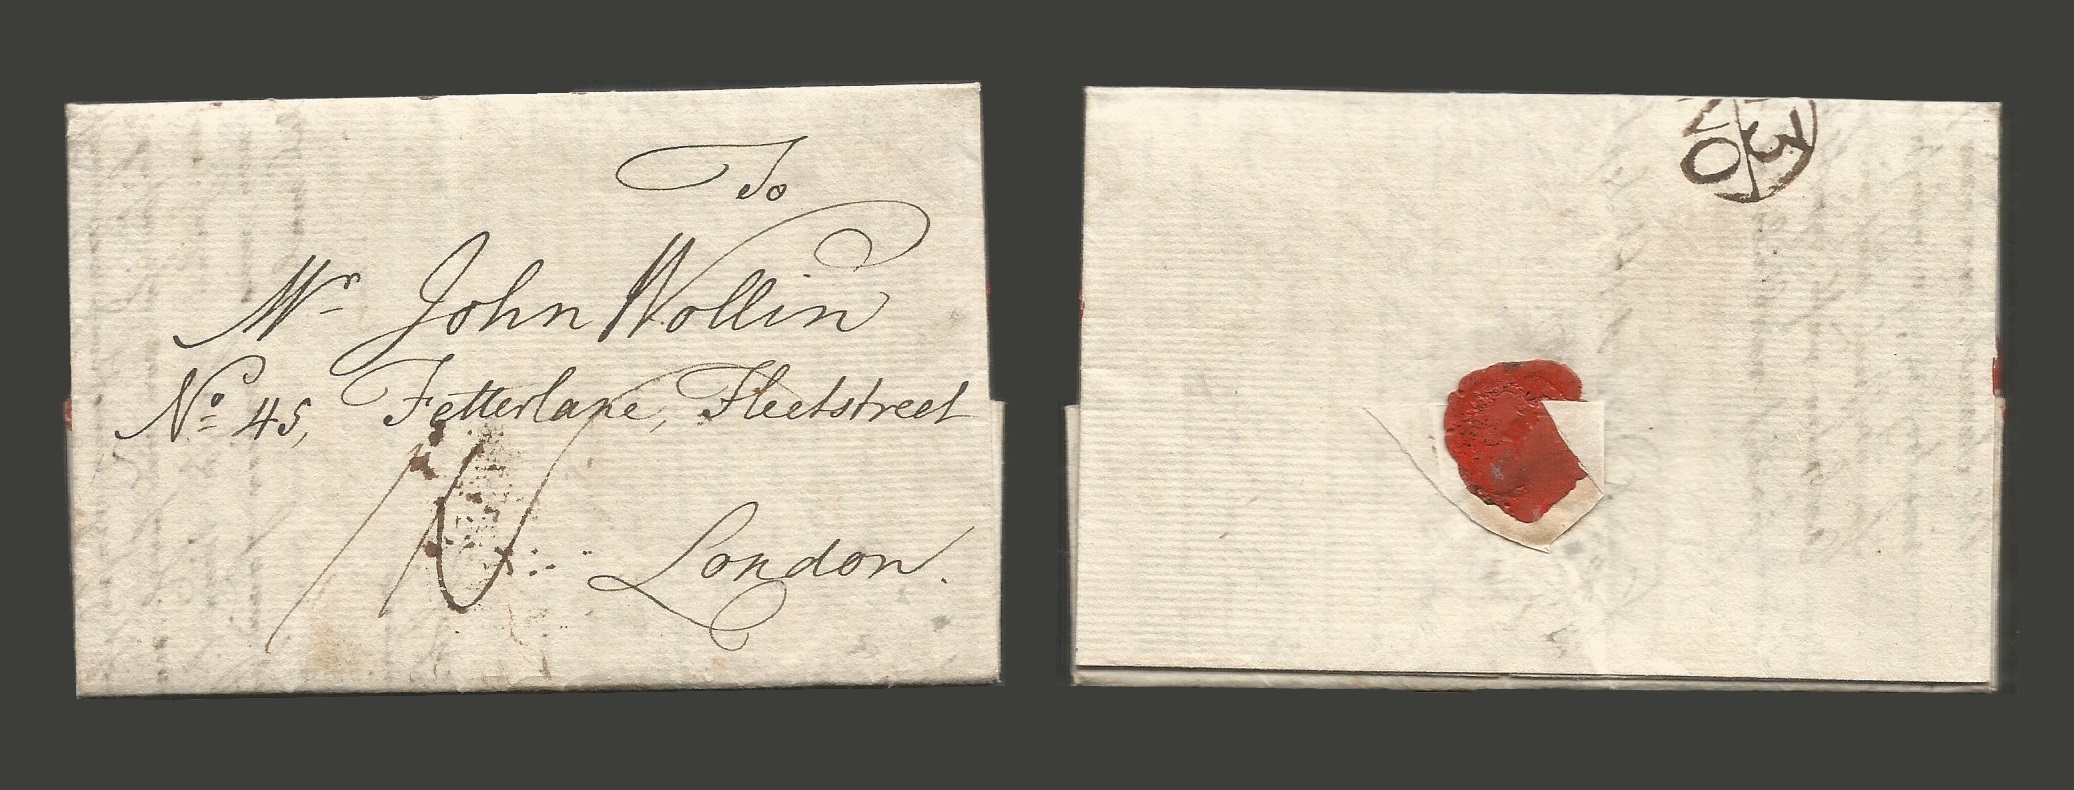 To
Mr John Wollin
No 45, Fetterlane, Fleetstreet
London.
NO
3